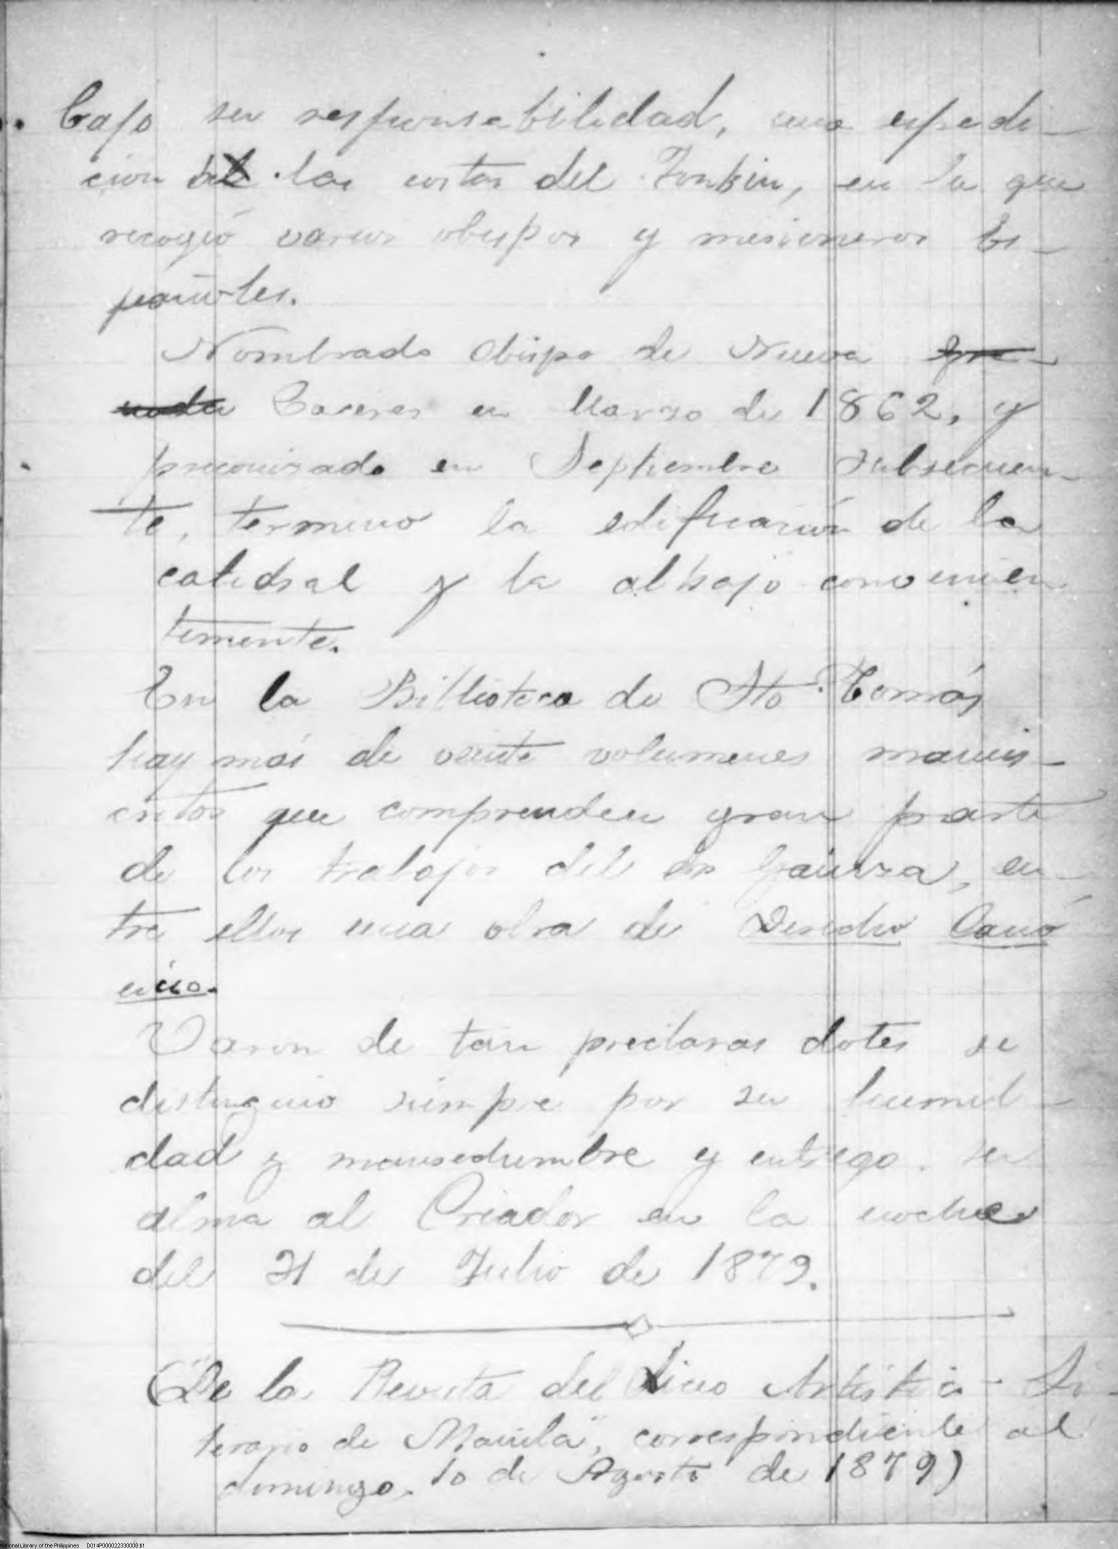 bajo su responsabilidad, una espedi-
cion a las costas del Tonkin, en la que
recogió varios obispos y misioneros Es-
pañoles.
Nombrado Obispo de Nueva Gra-
nada Caceres en Marzo de 1862, y
preconizado en Septiembre subsecuen-
te, termino la edificación de la
catedral y la alhajó convenien
temente.
En la Biblioteca de Sto Tomás
hay mas de veinte volumenes manus-
critos que comprenden gran parte
de los trabajos del Gainza, en-
tre ellos una obra de Derecho Canó
nico.
Varon de tan preclaras dotes se
distinguio siempre por su humil-
dad y mansedumbre y entrego su
alma al Criador en la noche
del 31 de Julio de 1879.
(De la Revista del Liceo Artístico - Li-
terario de Manila", correspondiente al
domingo, 10 de Agosto de 1879)
National Library of the Philippines